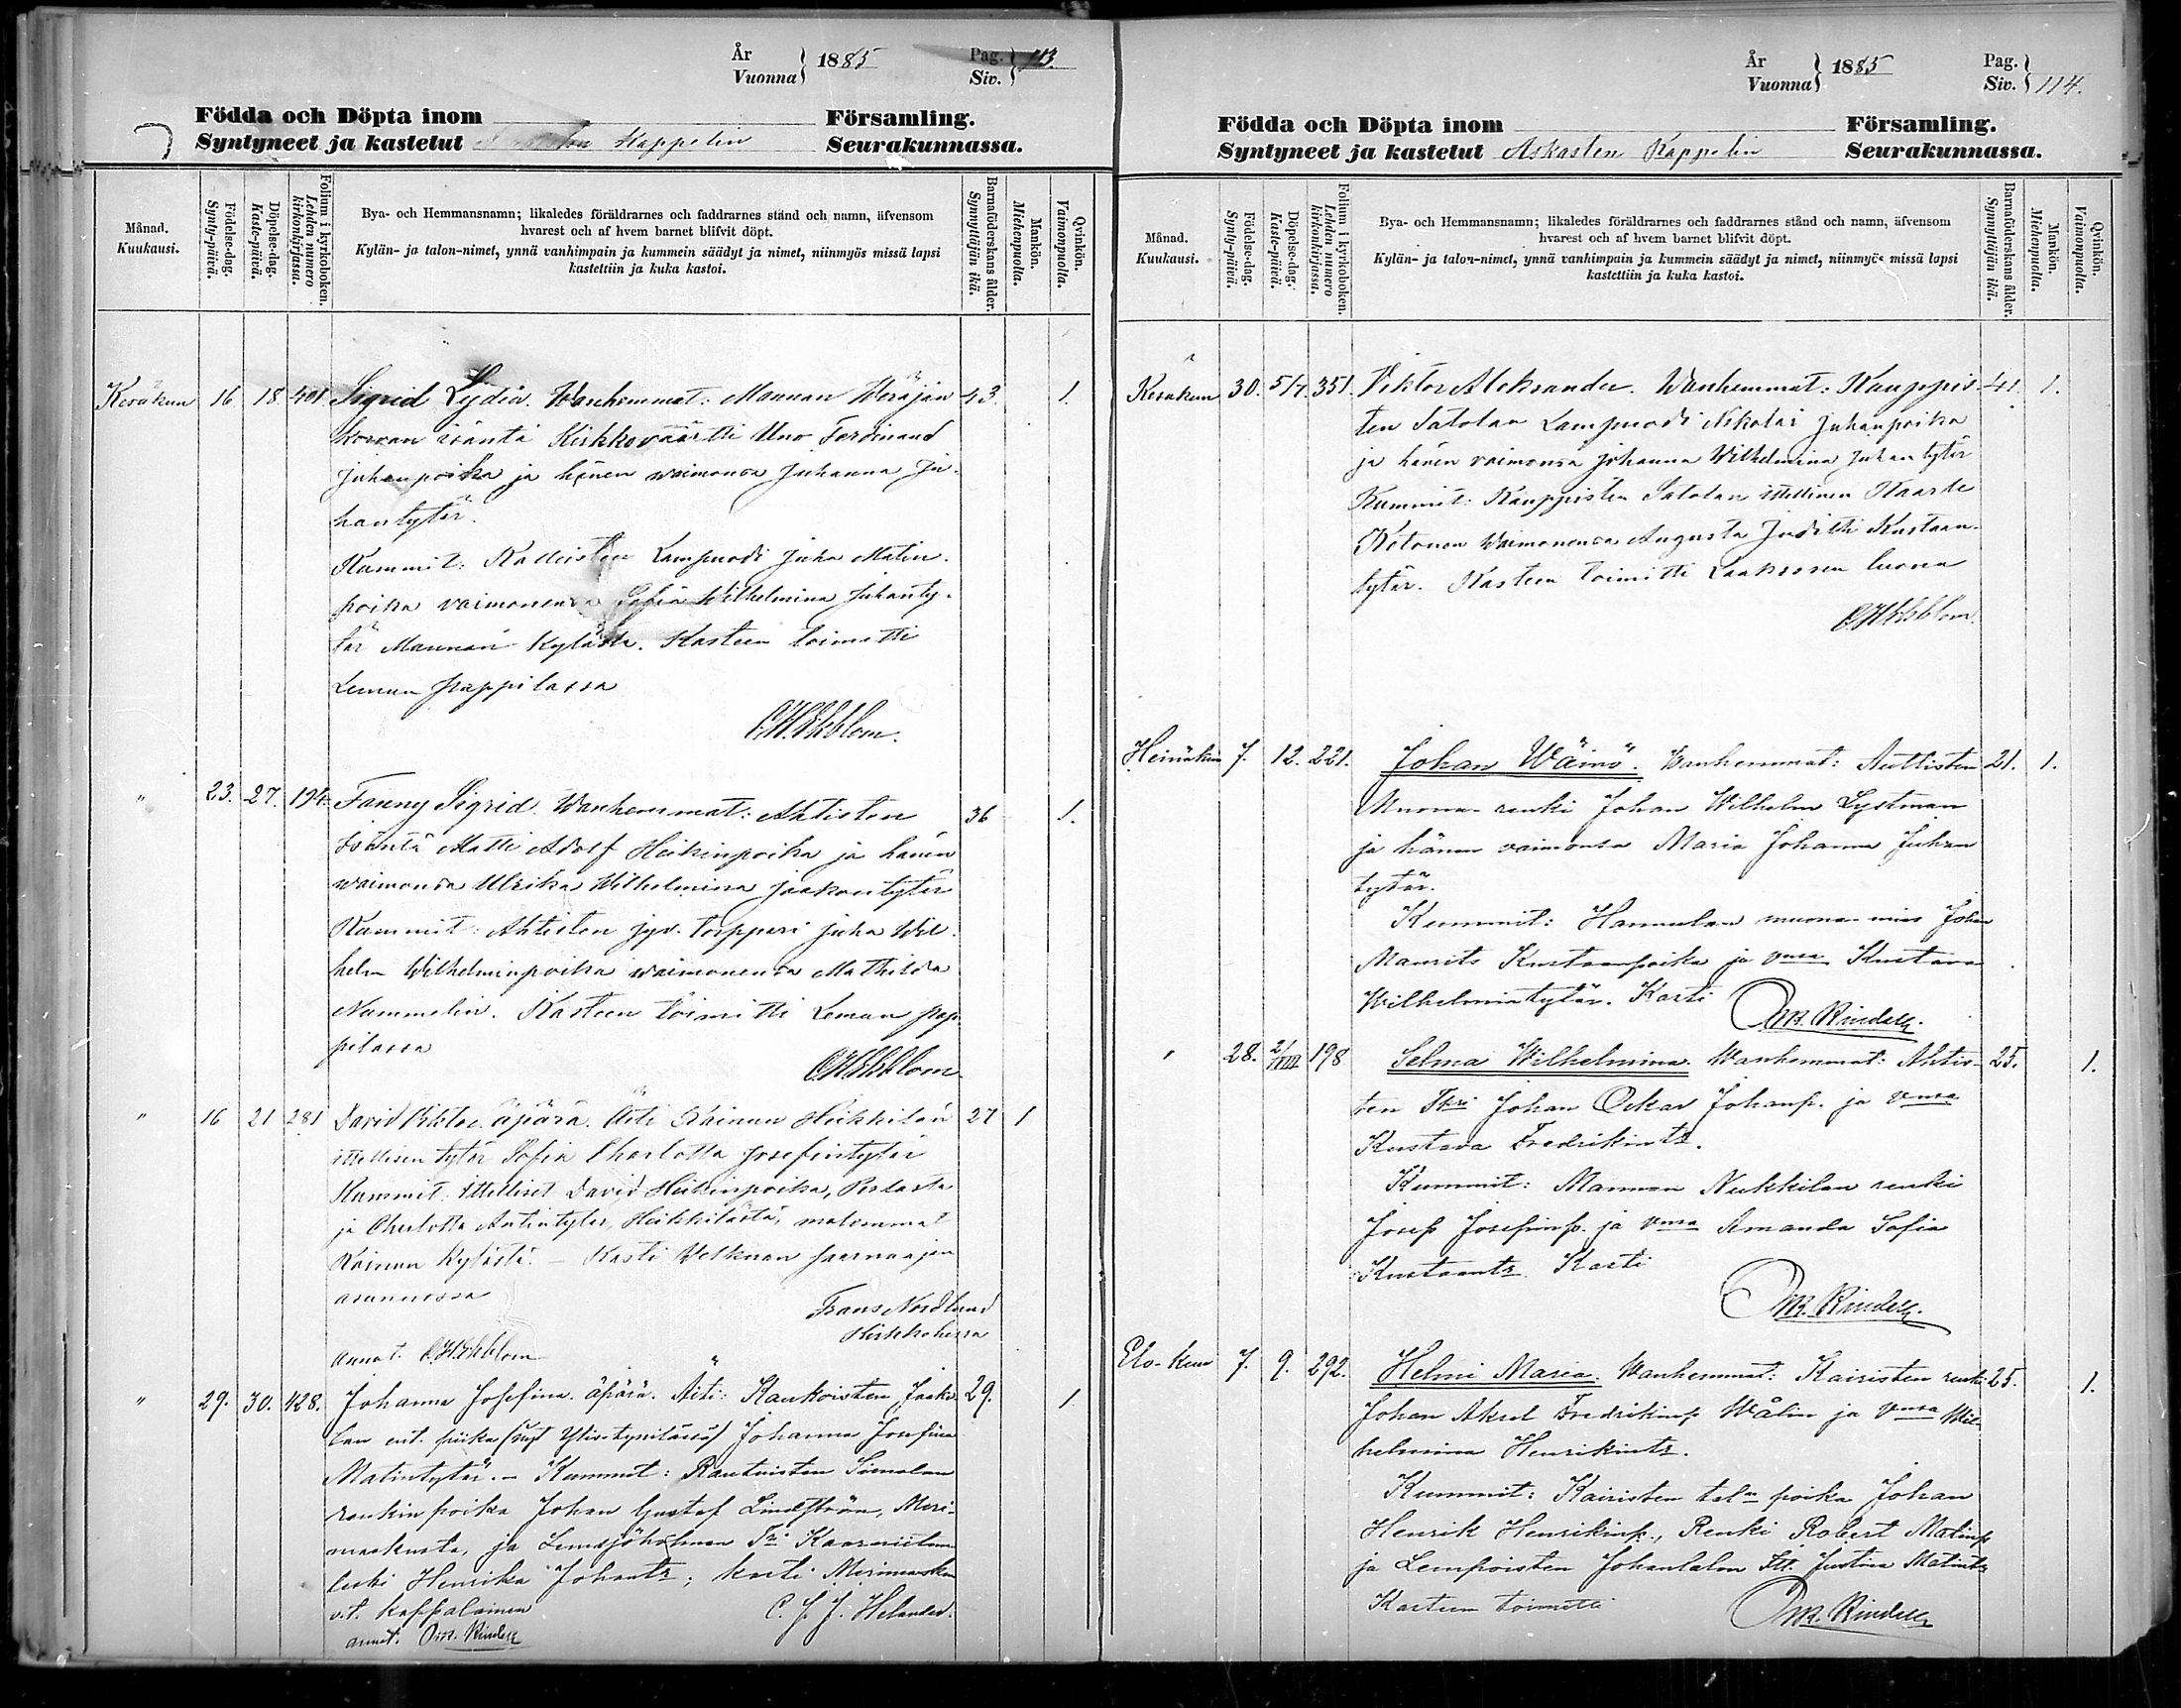 År
Vuonna } 1885
Pag.
Siv. } 113.
Födda och Döpta inom Församling.
Syntyneet ja kastetut Kappelin Seurakunnassa.
Månad.
Kuukausi.
Födelse-dag.
Synty-päivä.
Döpelse-dag.
Kaste-päivä.
Folium i kyrkoboken.
Lehden numero kirkonkirjassa.
Bya- och Hemmansnamn; likaledes föräldrarnes och faddrarnes stånd och namn, äfvensom
hvarest och af hvem barnet blifvit döpt.
Kylän- ja talon-nimet, ynnä vanhimpain ja kummein säädyt ja nimet, niinmyös missä lapsi
kastettiin ja kuka kastoi.
Barnaföderskans ålder.
Synnyttäjän ikä.
Mankön.
Miehenpuolia.
Qvinkön.
Vaimonpuolia.
Kesäkuu 16 18 401 Sigrid Lydia. Wanhemmat: Mannan 43. 1.
isäntä Kirkkoväärtti Uno Ferdinand
Juhanpoika ja hänen waimonsa Juhanna Ju-
hantytär.
Kummit: Lampuodi Juha Matin-
poika vaimonensa Sofia Wilhelmina Juhanty-
tär Mannan kylästä. Kasteen toimitti
Lemun pappilassa
C.W.Ekblom.
" 23. 27. 194. Fanny Sigrid. Wanhemmat: Ahtisten 36 1.
Isäntä Matti Adolf Heikinpoika ja hänen
waimonsa Ulrika Wilhelmina Jaakontytär
Kummit: Ahtisten jyv. torppari Juha Wil-
helm Wilhelminpoika waimonensa Mathilda
Nummelin. Kasteen toimitti Lemun pap-
pilassa
C.W.Ekblom.
" 16 21 281 David Viktor. äpärä. Äiti Kainun Heikkilän 27 1
ittellisen tytär Sofia Charlotta Josefintytär
Kummit: Ittelliset David Heikinpoika,
ja Charlotta Antintytär, Heikkilästä, molemmat
Kainun kylästä. – Kasti Welkuan saarnaajan
asunnossa
Frans Nordlund
Kirkkoherra
Annot. C.W.Ekblom
" 29. 30. 428. Johanna Josefina. äpärä. Äiti: Kankoisten Jaako- 29. 1
lan ent. piika (nyt ) Johanna Josefina
Matintytär. – Kummit: Rautuisten Simolan
renkin poika Johan Gustaf Lindström, Meri-
maskusta, ja
leski Henrika Johantr; kasti Merimaskun
v.t. kappalainen C. J. J. Helander.
annot. Rindell
År
Vuonna } 1885
Pag.
Siv. } 114.
Födda och Döpta inom Församling.
Syntyneet ja kastetut Askaisten Kappelin Seurakunnassa.
Månad.
Kuukausi.
Födelse-dag.
Synty-päivä.
Döpelse-dag.
Kaste-päivä.
Folium i kyrkoboken.
Lehden numero kirkonkirjassa.
Bya- och Hemmansnamn; likaledes föräldrarnes och faddrarnes stånd och namn, äfvensom
hvarest och af hvem barnet blifvit döpt.
Kylän- ja talon-nimet, ynnä vanhimpain ja kummein säädyt ja nimet, niinmyös missä lapsi
kastettiin ja kuka kastoi.
Barnaföderskans ålder.
Synnyttäjän ikä.
Mankön.
Miehenpuolia.
Qvinkön.
Vaimonpuolia.
Kesäkuu 30. 5/7. 351. Viktor Aleksander. Wanhemmat: Kauppis- 41. 1.
ten Satolan Lampuodi Nikolai Juhanpoika
ja hänen vaimonsa Johanna Wilhelmina Juhantytär
Kummit: Kauppisten Satolan ittellinen Kaarle
Ketonen Waimonensa Augusta Judith Kustaan-
tytär. Kasteen toimitti luona
C.W.Ekblom.
Heinäkuu 7. 12. 221. Johan Wäinö. Wanhemmat: Autlisten 21. 1.
Muona-renki Johan Wilhelm Lystman
ja hänen vaimonsa Maria Johanna Juhan
tytär.
Kummit: Hannulan muona-mies Johan
Maurits Kustaanpoika ja vmsa Kustava
Wilhelmintytär. Kasti
Rindell.
" 28. 2/VIII 198 Selma Wilhelmina. Wanhemmat: Ahtis- 25. 1.
ten Johan Oskar Johanp. ja vmsa
Kustava Fredrikintr.
Kummit: Mannan Nukkilan renki
Josef Josefinp. ja vmsa Amanda Sofia
Kustaantr. Kasti
Rindell.
Elo-kuu 7. 9. 292. Helmi Maria. Wanhemmat: Kairisten renki 25. 1.
Johan Aksel Fredrikinp Wålin ja vmsa Wil-
helmina Henrikintr.
Kummit: Kairisten taln poika Johan
Henrik Henrikinp., Renki Robert Matinp
ja Lempoisten Johantalon Itt. Justina Matintr
Kasteen toimitti
Rindell